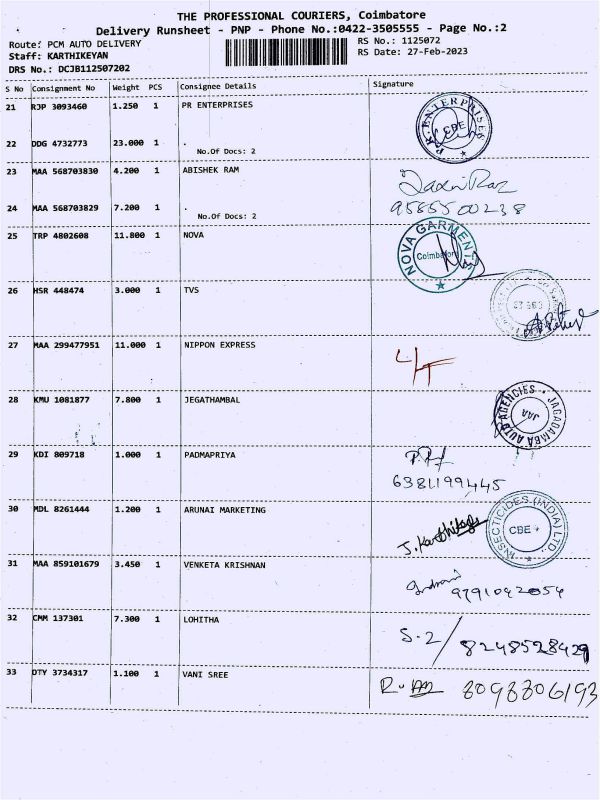 THE PROFESSIONAL COURIERS, Coimbatore
Delivery Runsheet - PNP - Phone No.:0422-3505555 - Page No.:2
Route: PCM AUTO DELIVERY RS No.: 1125072
Staff: KARTHIKEYAN RS Date: 27-Feb-2023
DRS No.: DCJB112507202
S No Consignment No Weight PCS Consignee Details Signature
21 RJP 3093460 1.250 1 PR ENTERPRISES
ENTERPRISES CBE
22 DDG 4732773 23.000 1 .
No.Of Docs: 2
23 MAA 568703830 4.200 1 ABISHEK RAM
24 MAA 568703829 7.200 1 . 9585500238
No.Of Docs: 2
25 TRP 4802608 11.800 1 NOVA
NOVA GARMENTS Coimbatore
26 HSR 448474 3.000 1 TVS
27 MAA 299477951 11.000 1 NIPPON EXPRESS
28 KMU 1081877 7.800 1 JEGATHAMBAL
JAGADAMBA AUTO AGENCIES JAA
29 KDI 809718 1.000 1 PADMAPRIYA
6381199445
30 MDL 8261444 1.200 1 ARUNAI MARKETING
J. Karthikeya
INSECTICIDES (INDIA) LTD. CBE
31 MAA 859101679 3.450 1 VENKETA KRISHNAN
9791042054
32 CMM 137301 7.300 1 LOHITHA
S-2/ 8248528429
33 DTY 3734317 1.100 1 VANI SREE
8098806193